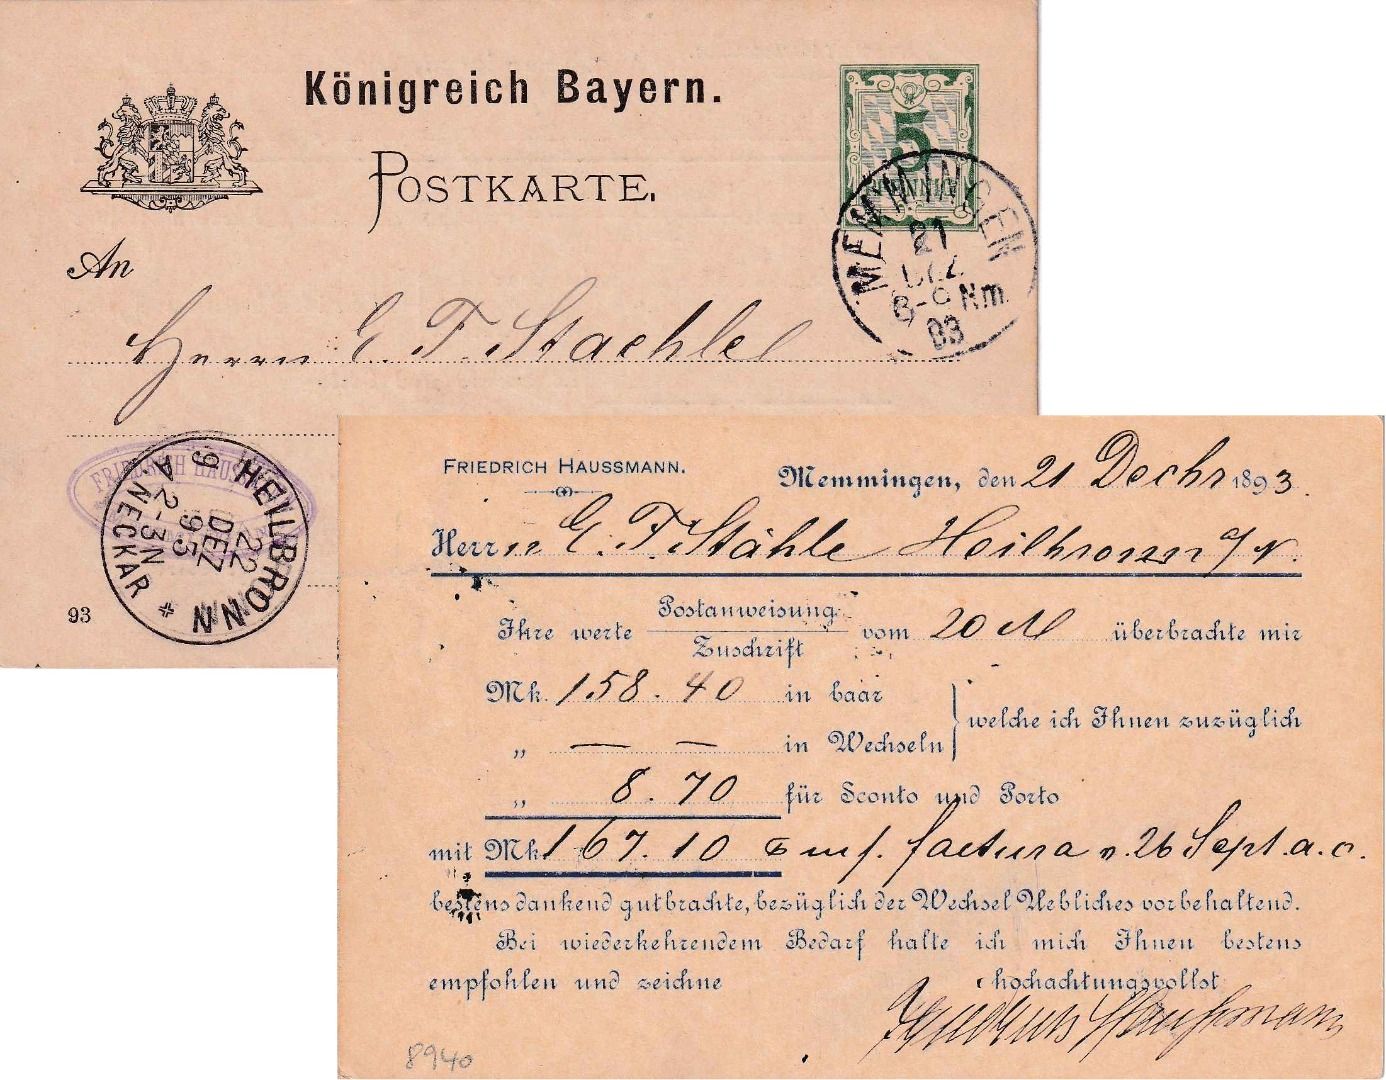 Königreich Bayern.
POSTKARTE.
5
PFENNIG
MEMMINGEN
21
DEZ
8-9 Nm.
93
An
Herrn E. F. Staehle
FRIEDRICH HAUSSMANN
HEILBRONN
9
22
DEZ
95
A 2-3N
NECKAR
93
FRIEDRICH HAUSSMANN.
Memmingen, den 21 Decbr 1893.
Herrn E. F. Stähle Heilbronn a/N.
Ihre werte Postanweisung
Zuschrift vom 20 überbrachte mir
Mk. 158.40 in baar
" — — in Wechseln } welche ich Ihnen zuzüglich
" 8.70 für Sconto und Porto
mit Mk 167.10 factura v. 26 Sept. a.c.
bestens dankend gutbrachte, bezüglich der Wechsel Uebliches vorbehaltend.
Bei wiederkehrendem Bedarf halte ich mich Ihnen bestens
empfohlen und zeichne hochachtungsvollst
Friedrich Haussmann
8940